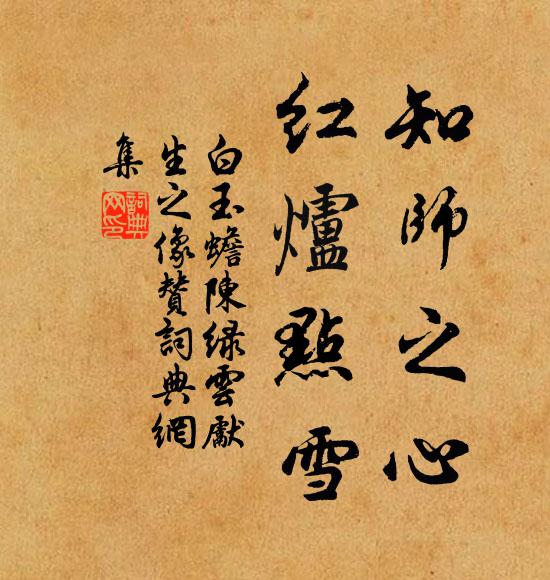 知師之心
紅爐點雪
白玉蟾陳綠雲獻
生之像贊詞典網
集
詞典
网印